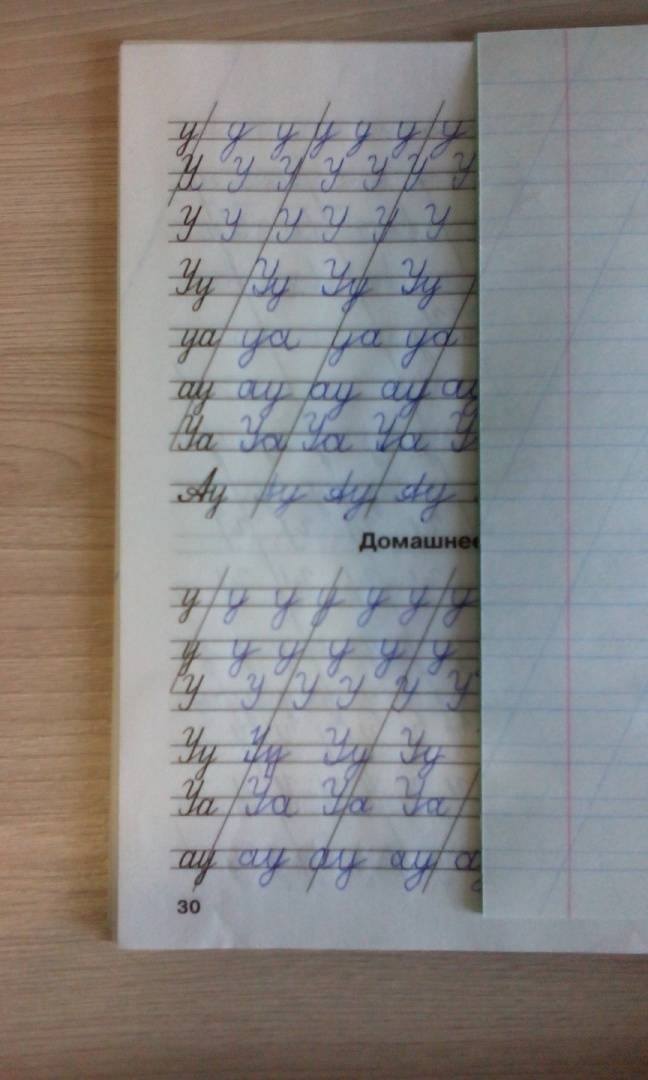 у у у у у у у
У У У У У У У
У У У У У У
Уу Уу Уу Уу
уа уа уа уа
ау ау ау ау ау
Уа Уа Уа Уа У
Ау Ау Ау Ау
Домашнее
у у у у у у у
у у у у у у
У У У У У У
Уу Уу Уу Уу
Уа Уа Уа Уа
ау ау ау ау а
30